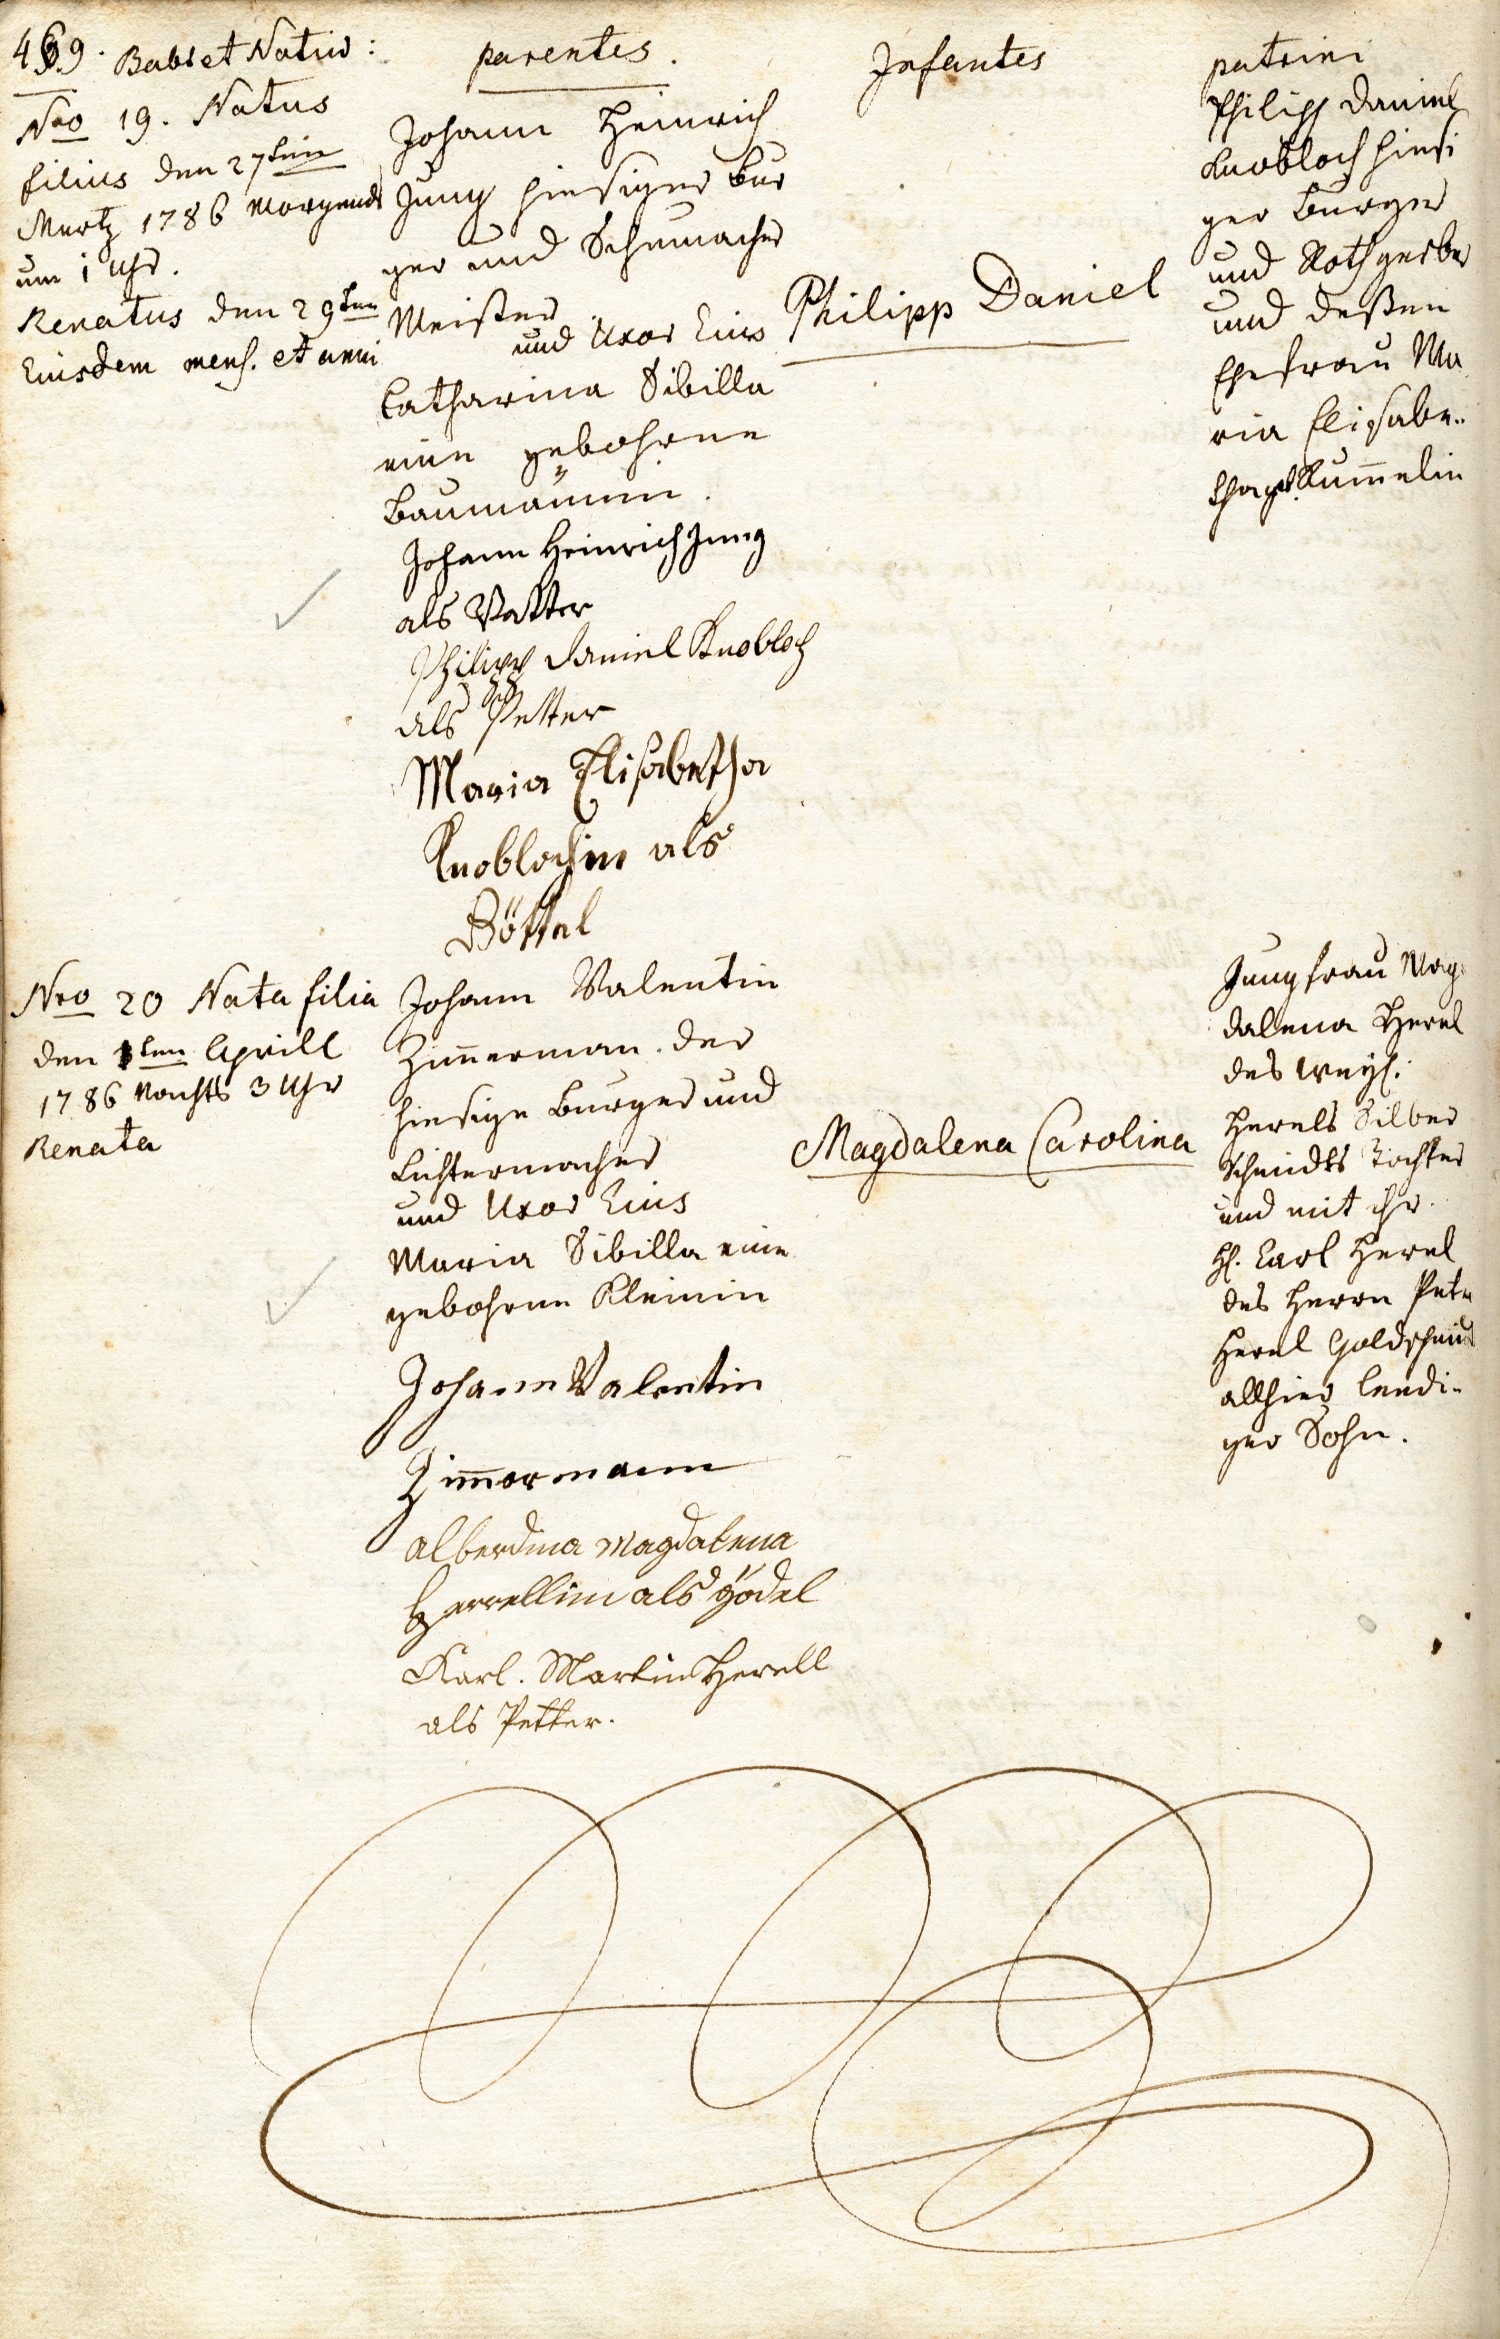 469. Babt et Nativ:
parentes.
Infantes
patrini
Nro 19. Natus
filius den 27ten
Mertz 1786 morgends
um 1 Uhr.
Renatus den 29ten
Eiusdem mens. et anni
Johann Heinrich
Jung hiesiger Bur
ger und Schumacher
Meister
und Uxor Eius
Catharina Sibilla
eine gebohrne
Baumännin.
Johann Heinrich Jung
als Vatter
Philipp Daniel Knobloch
als Petter
Maria Elisabetha
Knoblochin als
Göttel
Philipp Daniel
Philipp Daniel
Knobloch hiesi
ger Burger
und Rothgerber
und deßen
Ehefrau Ma
ria Elisabe..
Kummelin
Nro 20 Nata filia
den 1ten Aprill
1786 Nachts 3 Uhr
Renata
Johann Valentin
Zimmerman. der
hiesige Burger und
Lichtermacher
und Uxor Eius
Maria Sibilla eine
gebohrne Kleinin
Johann Valentin
Zimmermann
Alberdina Magdalena
Herrellin als Gödel
Karl. Martin Herell
als Petter.
Magdalena Carolina
Jungfrau Mag
dalena Herel
des weyl.
Herels Silber
Schmidts Tochter
und mit ihr
H. Carl Herel
des Herrn Pete
Herel Goldschmid
allhier leedi-
ger Sohn.